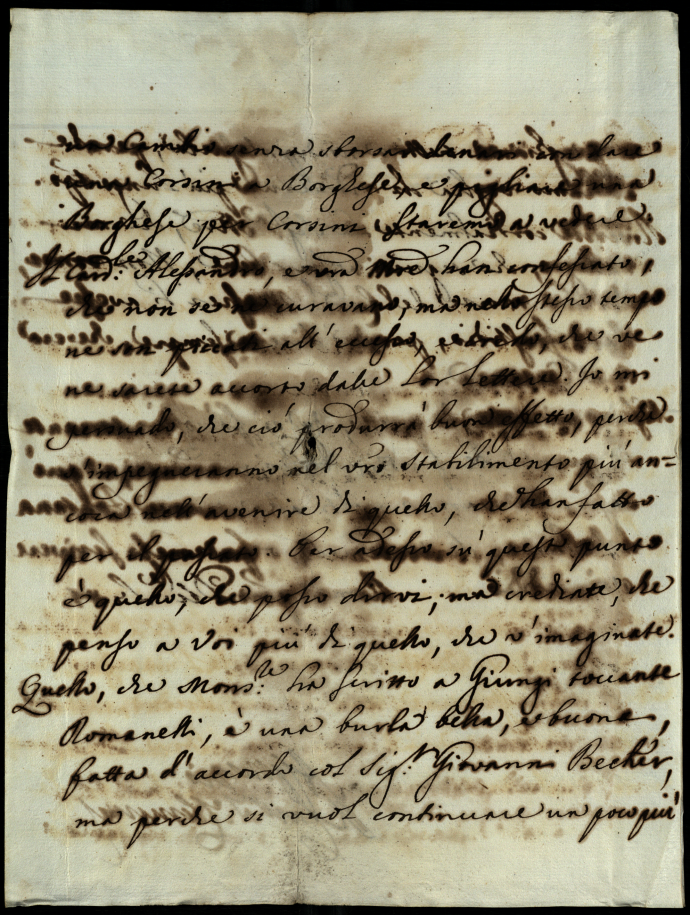 un Cambio senza sborsar denari con dare
Corsini a Borghese, e pigliare una
Borghese per Corsini. Staremo a vedere.
Il Card.le Alessandro, e vra Mre han confessato,
che non se ne curavano; ma nello stesso tempo
ne son piccati all' eccesso, e credo, che ve
ne sarete accorto dalle Lor Lettere. Io mi
persuado, che ciò produrrà buon effetto, perche
s'impegneranno nel vro stabilimento più an=
cora nell'avenire di quello, che han fatto
per il passato. Per adesso su questo punto
è quello, che posso dirvi; ma crediate, che
penso a Voi più di quello, che v'imaginate.
Quello, che Mons.re ha scritto a Giungi toccante
Romanelli, è una burla bella, e buona,
fatta d'accordo col Sig.r Giovanni Becher,
ma perche si vuol continuare un poco più